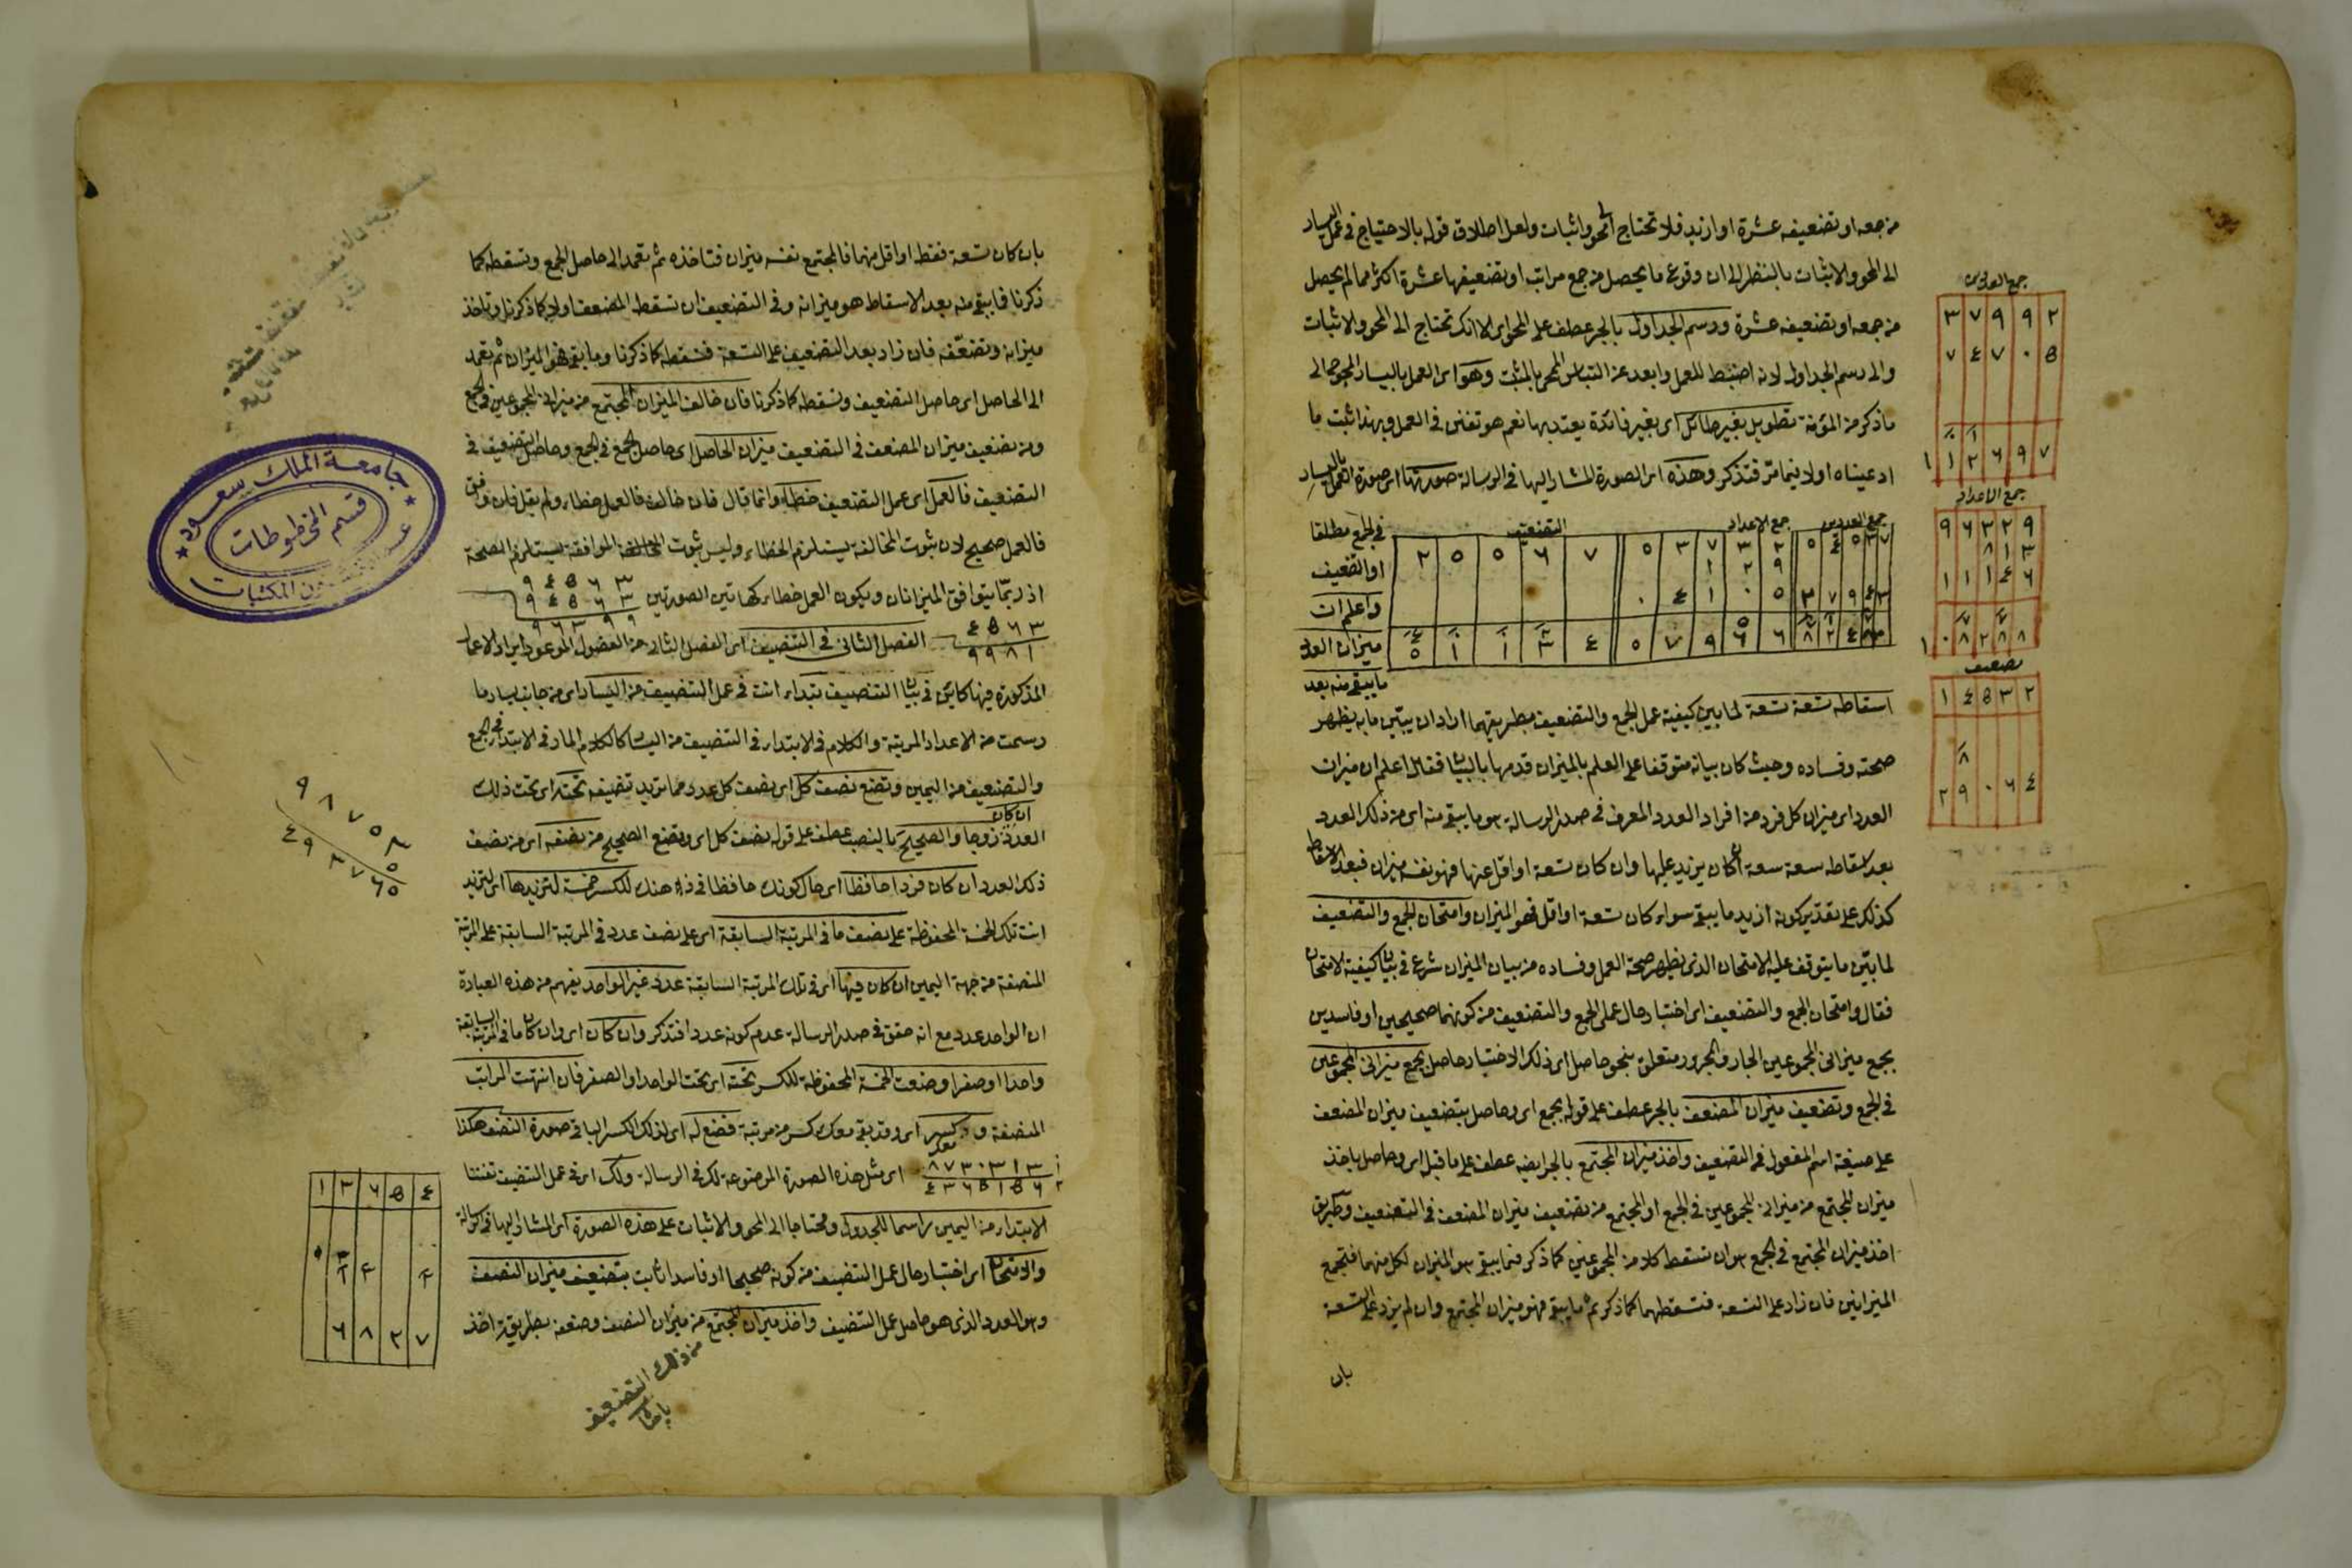 من جمعه او تضعيفه عشرة او ازيد فلا تحتاج الى محو واثبات ولعل اطلاق قوله بالاحتياج في عمل اليسار
الى المحو والاثبات بالنظر الى ان وقوع ما يحصل من جمع مراتب او تضعيفها عشرة اكثر مما لم يحصل
من جمعه او تضعيفه عشرة ورسم الجداول بالجر عطف على المحو اى الا انك تحتاج الى المحو والاثبات
والى رسم الجداول لانه اضبط للعمل وابعد عن التباس المحو بالمثبت وهو اى العمل باليسار المحوج الى
ما ذكر من المؤنة تطويل بغير طائل اى بغير فائدة يعتد بها نعم هو تفنن فى العمل وبهذا ثبت ما
ادعيناه اولا فيما مر فتذكر وهذه اى الصورة المشار اليها فى الرسالة صورتها اى صورة العمل باليسار
فى الجمع مطلقا
او التضعيف
واعلم ان
ميزان العدد
ما يبقى منه بعد
جمع العددين
جمع الاعداد
التضعيف
٢ ٥ ٥ ٦ ٧
استقاطه تسعة تسعة لما بين كيفية عمل الجمع والتضعيف بطريقهما اراد ان يبين ما به يظهر
صحته وفساده وحيث كان بيانه متوقفا على العلم بالميزان قدمها بالبيان فقال اعلم ان ميزان
العدد اى ميزان كل فرد من افراد العدد المعرف فى صدر الرسالة هو ما يبقى منه اى من ذلك العدد
بعد اسقاطه تسعة تسعة ان كان يزيد عليها وان كان تسعة او اقل عنها فهو نفسه ميزان فبعد الاسقاط
كذلك على تقدير كونه ازيد ما يبقى سواء كان تسعة او اقل فهو الميزان وامتحان الجمع والتضعيف
لما بين ما يتوقف عليه الامتحان الذى يظهر صحة العمل وفساده من بيان الميزان شرع فى بيان كيفية الامتحان
فقال وامتحان الجمع والتضعيف اى اختبار حال عملى الجمع والتضعيف من كونهما صحيحين او فاسدين
بجمع ميزانى المجموعين الجار والمجرور متعلق بنحو حاصل اى ذلك الاختبار حاصل بجمع ميزانى المجموعين
فى الجمع وتضعيف ميزان المضعف بالجر عطف على قوله بجمع اى وحاصل بتضعيف ميزان المضعف
على صيغة اسم المفعول فى التضعيف واخذ ميزان المجتمع بالجر ايضا عطف على ما قبله اى وحاصل باخذ
ميزان المجتمع من ميزانى المجموعين فى الجمع او المجتمع من تضعيف ميزان المضعف فى التضعيف وطريق
اخذ ميزان المجتمع فى الجمع هو ان تسقط كلا من المجموعين كما ذكر فما يبقى هو الميزان لكل منهما فتجمع
الميزانين فان زاد على التسعة فتسقطهما كما ذكر ثم ما يبقى فهو ميزان المجتمع وان لم يزد على التسعة
بان
جمع العددين
٣ ٧ ٩ ٩ ٢
٧ ٤ ٧ ٠ ٥
١ ١ ٢ ٦ ٩ ٧
جمع الاعداد
٩ ٦ ٣ ٢ ٩
٨ ١ ٣
١ ١ ١ ٤ ٦
١ ٠ ٨ ٢ ٨ ٨
تضعيف
١ ٤ ٥ ٣ ٢
٢ ٩ ٠ ٦ ٤
بان كان تسعة فقط او اقل منها فالمجتمع نفسه ميزان فتاخذه ثم تعمد الى حاصل الجمع وتسقطه كما
ذكرنا فما يبقى منه بعد الاسقاط هو ميزانه وفى التضعيف ان تسقط المضعف اولا كما ذكرنا وتاخذ
ميزانه وتضعّفه فان زاد بعد التضعيف على التسعة فتسقطه كما ذكرنا وما يبقى فهو الميزان ثم تعمد
الى الحاصل اى حاصل التضعيف وتسقطه كما ذكرنا فان خالف الميزان المجتمع من ميزانى المجموعين فى الجمع
ومن تضعيف ميزان المضعف فى التضعيف ميزان الحاصل اى حاصل الجمع فى الجمع وحاصل التضعيف فى
التضعيف فالعمل اى عمل التضعيف خطاء وانما قال فان خالف فالعمل خطاء ولم يقل فان وافق
فالعمل صحيح لان ثبوت المخالفة يستلزم الخطاء وليس ثبوت الموافقة يستلزم الصحة
اذ ربما يتوافق الميزانان ويكون العمل خطاء كهاتين الصورتين
٩ ٤ ٥ ٦ ٣
٩ ٤ ٥ ٦ ٣
٩ ٦ ٣ ٩ ٩
٤ ٥ ٦ ٣
٩ ٩ ٨ ١
الفصل الثانى فى التنصيف اى الفصل الثانى من الفصول الموعود ايراد الاعمال
المذكورة فيها كائن فى بيان التنصيف تبتداء انت فى عمل التنصيف من اليسار اى من جانب يسار ما
رسمت من الاعداد المرتبة والكلام فى الابتداء فى التنصيف من اليسار كالكلام المار فى الابتداء فى الجمع
والتضعيف من اليمين وتضع نصف كل اى نصف كل عدد مما تريد تنصيفه تحته اى تحت ذلك
العدد ان كان زوجا والصحيح بالنصب عطف على قوله نصف كل اى وتضع الصحيح من نصفه اى من نصف
ذلك العدد ان كان فردا حافظا اى حال كونك حافظا فى ذهنك للكسر خمسة لتزيدها اى لتزيد
انت تلك الخمسة المحفوظة على نصف ما فى المرتبة السابقة اى على نصف عدد فى المرتبة السابقة على المرتبة
المنصفة من جهة اليمين ان كان فيها اى فى تلك المرتبة السابقة عدد غير الواحد يفهم من هذه العبارة
ان الواحد عدد مع انه حقق فى صدر الرسالة عدم كونه عددا فتذكر وان كان اى وان كان ما فى المرتبة السابقة
واحدا او صفرا وضعت الخمسة المحفوظة للكسر تحته اى تحت الواحد او الصفر فان انتهت المراتب
المنصفة ومعك كسر اى وقد بقى معك كسر من مرتبة فضع له اى لذلك الكسر الباقى صورة النصف هكذا
٨ ٧ ٣ ٠ ٣ ١ ٣
٤ ٣ ٦ ٥ ١ ٥ ٦
اى مثل هذه الصورة الموضوعة لك فى الرسالة ولك اى فى عمل التنصيف تفننا
الابتداء من اليمين راسما للجدول ومحتاجا الى المحو والاثبات على هذه الصورة اى المشار اليها فى الرسالة
والامتحان اى اختبار حال عمل التنصيف من كونه صحيحا او فاسدا ثابت بتضعيف ميزان النصف
وهو العدد الذى هو حاصل عمل التنصيف واخذ ميزان المجتمع من ميزان النصف وضعفه بطريقة اخذ
من ذلك التضعيف
٩ ٨ ٧ ٥ ٣
٤ ٩ ٣ ٧ ٦ ٥
١ ٣ ٦ ٥ ٤
٦ ٨ ٢ ٧
جامعة الملك سعود
قسم المخطوطات
عمادة شؤون المكتبات